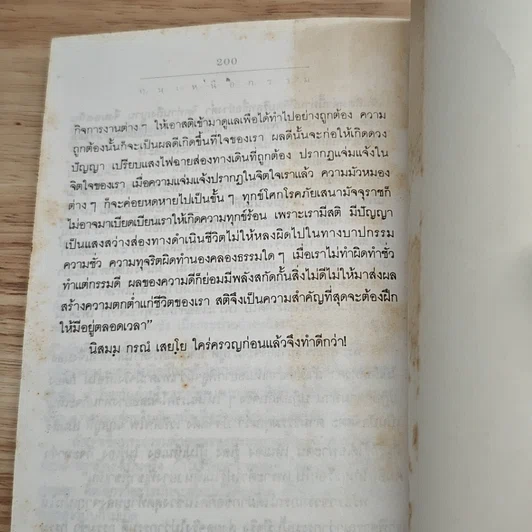 200
กิจการงานต่างๆ ให้เอาสติเข้ามาดูแลเพื่อได้ทำไปอย่างถูกต้อง ความ
ถูกต้องนั้นก็จะเป็นผลดีเกิดขึ้นที่ใจของเรา ผลดีนั้นจะก่อให้เกิดดวง
ปัญญา เปรียบแสงไฟฉายส่องทางเดินที่ถูกต้อง ปรากฏแจ่มแจ้งใน
จิตใจของเรา เมื่อความแจ่มแจ้งปรากฏในจิตใจเราแล้ว ความมัวหมอง
ต่างๆ ก็จะค่อยหดหายไปเป็นขั้นๆ ทุกข์โศกโรคภัยเสนามัจจุราชก็
ไม่อาจมาเบียดเบียนเราให้เกิดความทุกข์ร้อน เพราะเรามีสติ มีปัญญา
เป็นแสงสว่างส่องทางดำเนินชีวิตไม่ให้หลงผิดไปในทางบาปกรรม
ความชั่ว ความทุจริตผิดทำนองคลองธรรมใดๆ เมื่อเราไม่ทำผิดทำชั่ว
ทำแต่กรรมดี ผลของความดีก็ย่อมมีพลังสกัดกั้นสิ่งไม่ดีไม่ให้มาส่งผล
สร้างความตกต่ำแก่ชีวิตของเรา สติจึงเป็นความสำคัญที่สุดจะต้องฝึก
ให้มีอยู่ตลอดเวลา”
นิสมฺม กรณํ เสยฺโย ใคร่ครวญก่อนแล้วจึงทำดีกว่า!